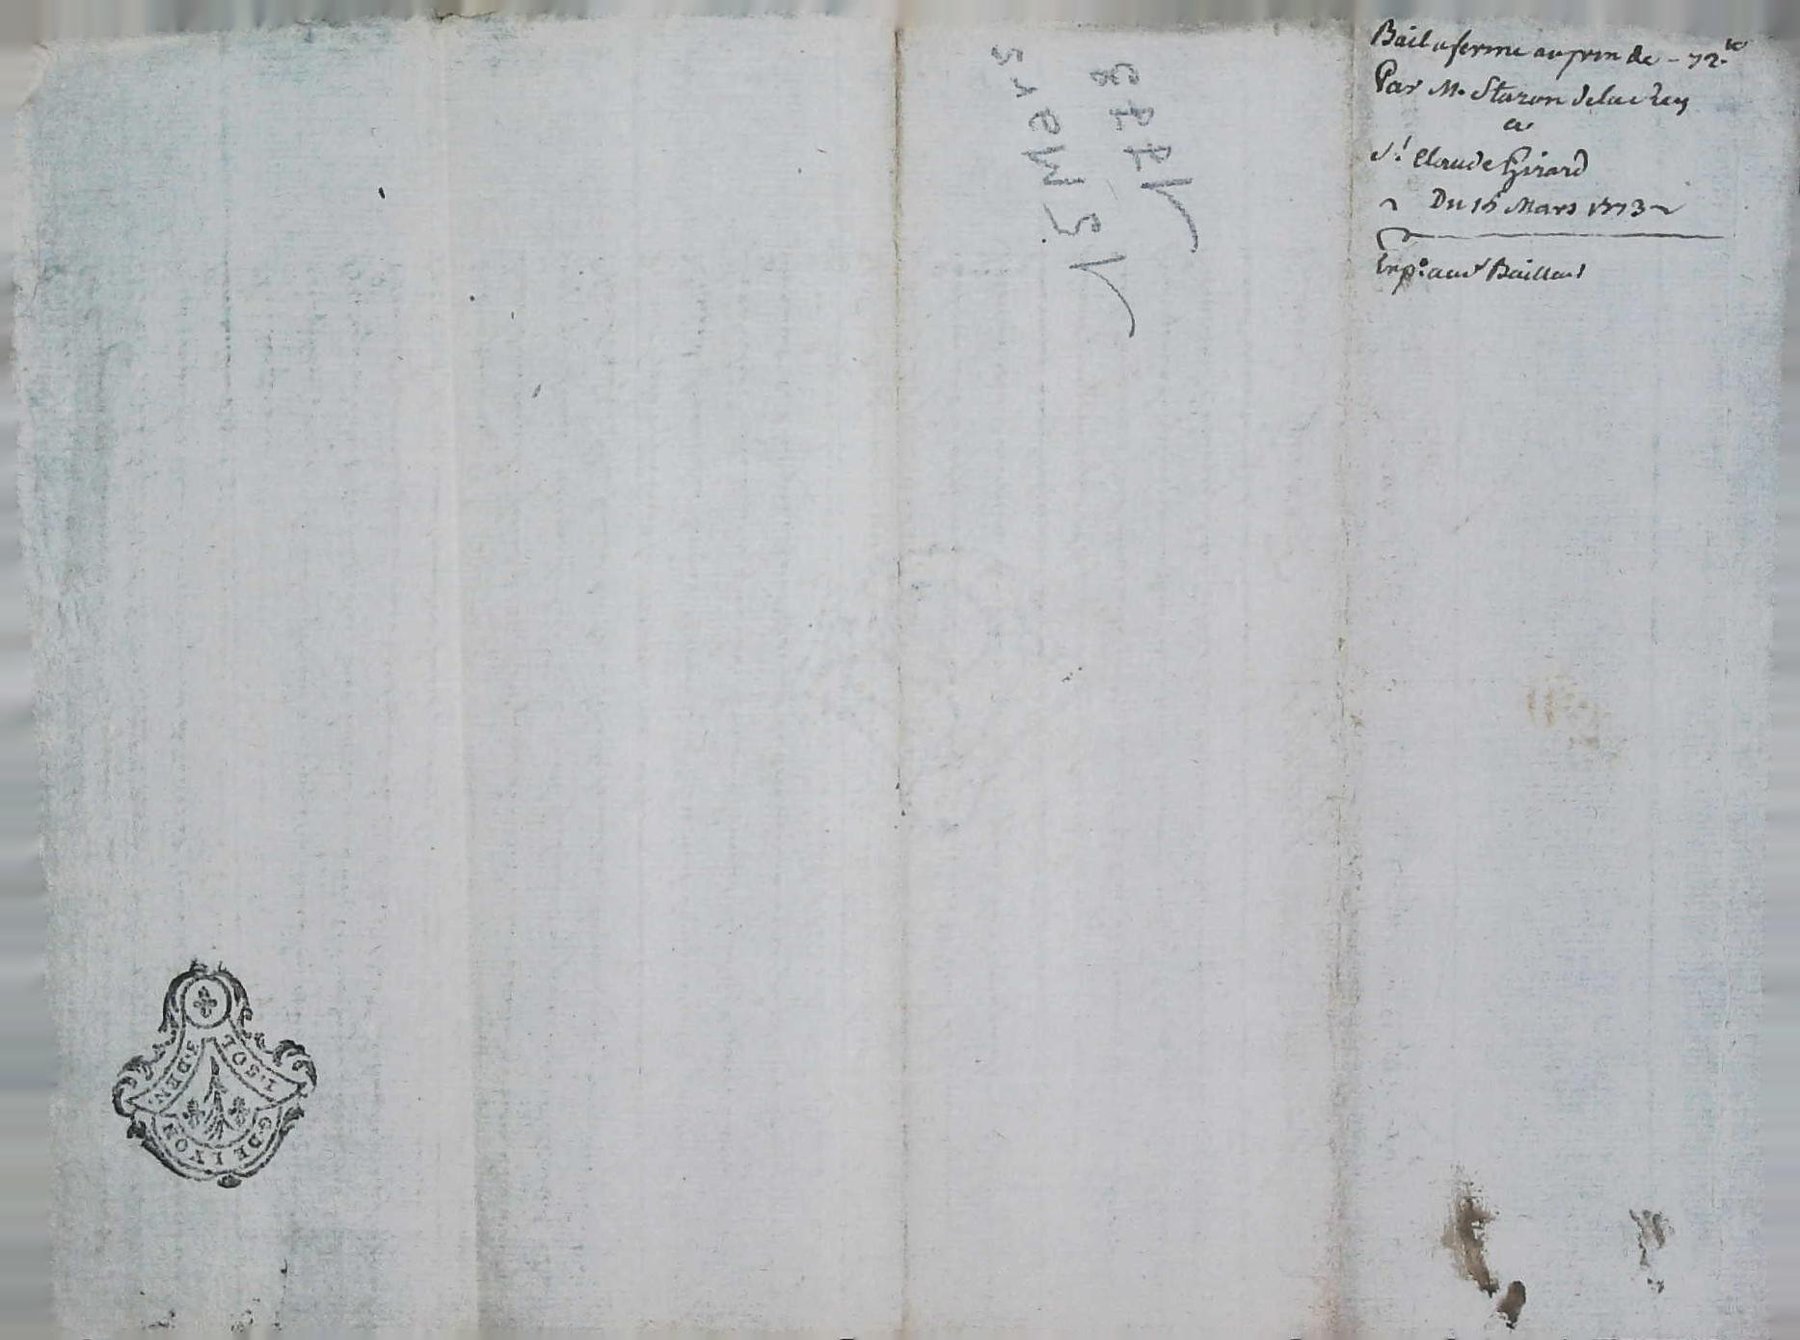 Bail a ferme au prix de - 72.tt
Par M. Staron Delarey
a
Sr. Claude Girard
Du 15 Mars 1773
Exp.on aud Bailleur
15 Mars
1773
1.SOL
3.DEN
G.DE LYON